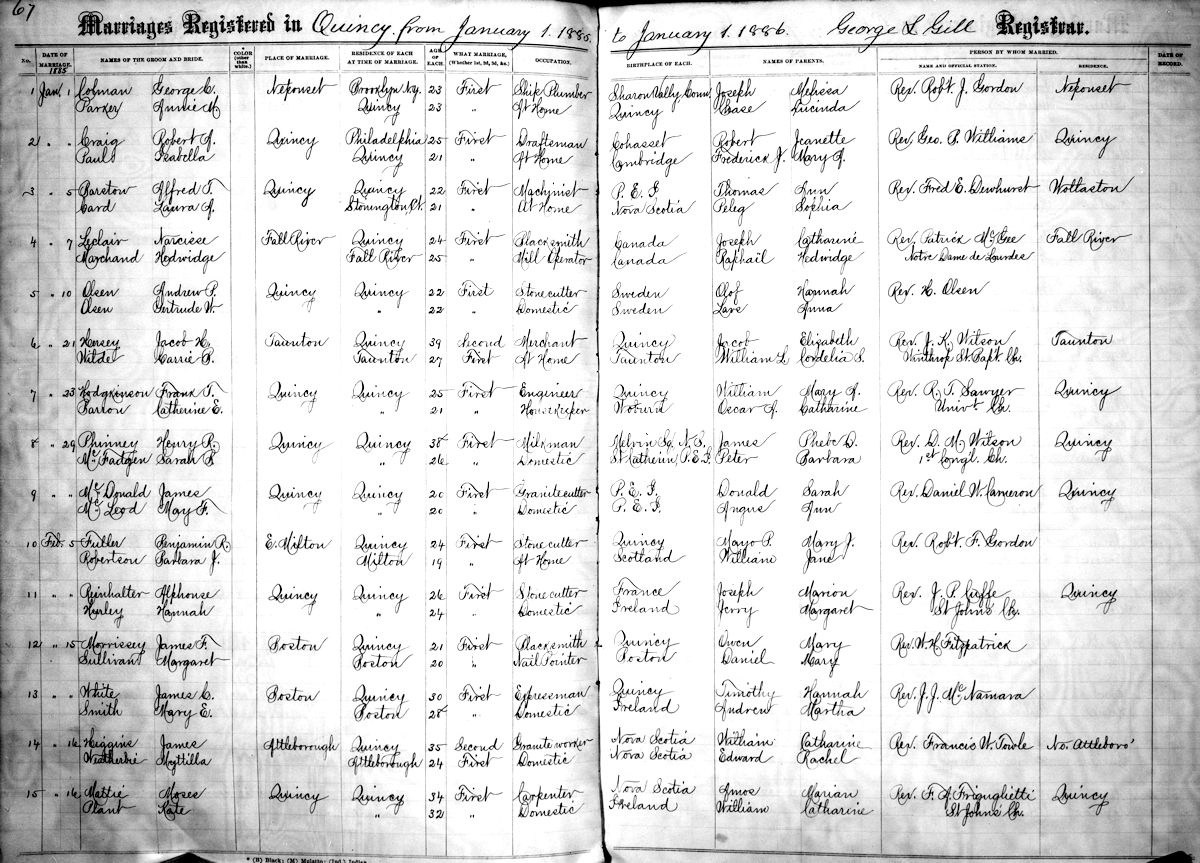 67
Marriages Registered in Quincy from January 1. 1885. to January 1. 1886. George L Gill Registrar.
No. DATE OF MARRIAGE. 1885 NAMES OF THE GROOM AND BRIDE. COLOR (other than white.) PLACE OF MARRIAGE. RESIDENCE OF EACH AT TIME OF MARRIAGE. AGE OF EACH. WHAT MARRIAGE, (Whether 1st, 2d, 3d, &c.) OCCUPATION. BIRTHPLACE OF EACH. NAMES OF PARENTS. PERSON BY WHOM MARRIED. NAME AND OFFICIAL STATION. RESIDENCE. DATE OF RECORD.
1 Jan. 1 Colman George C. Neponset Brooklyn N.y. 23 First Ship Plumber Sharon Vally Conn. Joseph Melissa Rev. Robt. J. Gordon Neponset
Parker Annie M Quincy 23 " At Home Quincy Case Lucinda
2 " " Craig Robert A. Quincy Philadelphia 25 First Draftsman Cohasset Robert Jeanette Rev. Geo. P. Williams Quincy
Paul Isabella Quincy 21 " At Home Cambridge Frederick J. Mary A.
3 " 5 Barston Alfred T. Quincy Quincy 22 First Machinist P. E. I Thomas Ann Rev. Fred E. Dewhurst Wollaston
Card Laura A. Stonington Ct. 21 " At Home Nova Scotia Peleg Sophia
4 " 7 Leclair Narcisse Fall River Quincy 24 First Blacksmith Canada Joseph Catharine Rev. Patrick Mc Gee Fall River
Marchand Hedwidge Fall River 25 " Mill Operator Canada Raphail Hedwidge Notre Dame de Lourdes
5 " 10 Olsen Andrew P. Quincy Quincy 22 First Stonecutter Sweden Olof Hannah Rev. H. Olsen
Olsen Gertrude W. " 22 " Domestic Sweden Lars Anna
6 " 21 Hersey Jacob H. Taunton Quincy 39 Second Merchant Quincy Jacob Elizabeth Rev. J. K. Wilson Taunton
Wilde Carrie B. Taunton 27 First At Home Taunton William L. Cordelia S. Winthrop St. Bapt Ch.
7 " 23 Hodgkinson Frank T. Quincy Quincy 25 First Engineer Quincy William Mary A. Rev. R. T. Sawyer Quincy
Barron Catherine E. " 21 " Housekeeper Woburn Oscar A. Catharine Univt. Ch.
8 " 29 Phinney Henry R. Quincy Quincy 38 First Milkman Melvin Sq. N. S. James Phebe D. Rev. D. M. Wilson Quincy
Mc Fadgen Sarah B. " 26 " Domestic St Katherin P. E. I. Peter Barbara 1st Congl. Ch.
9 " " Mc Donald James Quincy Quincy 20 First Granite cutter P. E. I. Donald Sarah Rev. Daniel W. Cameron Quincy
Mc Leod May F. " 20 " Domestic P. E. I. Angus Ann
10 Feb. 5 Fuller Benjamin R. E. Milton Quincy 24 First Stone cutter Quincy Mayo P. Mary J. Rev. Robt. F. Gordon
Robertson Barbara J. Milton 19 " At Home Scotland William Jane
11 " " Reinhalter Alphonse Quincy Quincy 26 First Stonecutter France Joseph Marion Rev. J. P. Cuffe Quincy
Hurley Hannah " 24 " Domestic Ireland Jerry Margaret St Johns Ch.
12 " 15 Morrissey James F. Boston Quincy 21 First Blacksmith Quincy Owen Mary Rev. W. H. Fitzpatrick
Sullivan Margaret Boston 20 " Nail Pointer Boston Daniel Mary
13 " " White James C. Boston Quincy 30 First Expressman Quincy Timothy Hannah Rev. J. J. Mc Namara
Smith Mary E. Boston 28 " Domestic Ireland Andrew Martha
14 " 16 Higgins James Attleborough Quincy 35 Second Granite worker Nova Scotia William Catharine Rev. Francis W. Towle No. Attleboro'
Weatherbie Myttilla Attleborough 24 First Domestic Nova Scotia Edward Rachel
15 " 16 Mattie Moses Quincy Quincy 34 First Carpenter Nova Scotia Amos Marian Rev. F. A. Friguglietti Quincy
Plant Kate " 32 " Domestic Ireland William Catharine St Johns Ch.
* (B) Black; (M) Mulatto; (Ind.) Indian